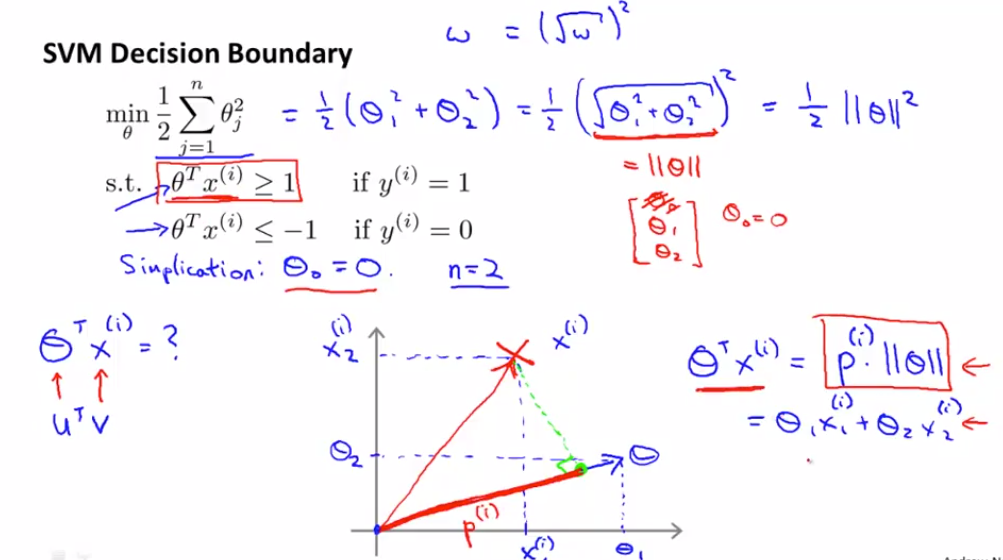 ω = (√ω)²
SVM Decision Boundary
min_θ 1/2 ∑_{j=1}^{n} θ_j² = 1/2 (θ₁² + θ₂²) = 1/2 (√(θ₁² + θ₂²))² = 1/2 ||θ||²
= ||θ||
s.t. θᵀx⁽ⁱ⁾ ≥ 1 if y⁽ⁱ⁾ = 1
→θᵀx⁽ⁱ⁾ ≤ −1 if y⁽ⁱ⁾ = 0
[θ₀ θ₁ θ₂] θ₀ = 0
Simplication: θ₀ = 0. n=2
θᵀx⁽ⁱ⁾ = ?
↑ ↑
uᵀv
x₂⁽ⁱ⁾
x⁽ⁱ⁾
θ₂
θ
p⁽ⁱ⁾
x₁⁽ⁱ⁾
θ₁
θᵀx⁽ⁱ⁾ = p⁽ⁱ⁾·||θ|| ←
= θ₁x₁⁽ⁱ⁾ + θ₂x₂⁽ⁱ⁾ ←
Andrew N